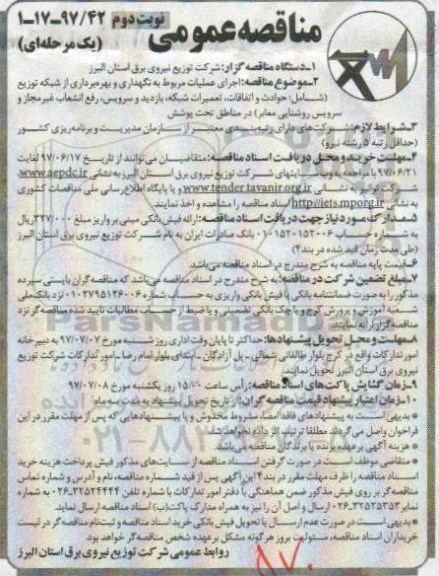 مناقصه عمومی
نوبت دوم
۱-۱۷-۹۷/۴۲
(یک مرحله‌ای)
۱-دستگاه مناقصه گزار: شرکت توزیع نیروی برق استان البرز
۲-موضوع مناقصه: اجرای عملیات مربوط به نگهداری و بهره‌برداری از شبکه توزیع
(شامل: حوادث و اتفاقات، تعمیرات شبکه، بازدید و سرویس، رفع انشعاب غیرمجاز و
سرویس روشنایی معابر) در مناطق تحت پوشش
۳-شرایط لازم: شرکت‌های دارای رتبه‌بندی معتبر از سازمان مدیریت و برنامه‌ریزی کشور
(حداقل رتبه ۵ رشته نیرو)
۴-مهلت خرید و محل دریافت اسناد مناقصه: متقاضیان می‌توانند از تاریخ ۹۷/۰۶/۱۷ لغایت
۹۷/۰۶/۲۱ با مراجعه به وب سایتهای شرکت توزیع نیروی برق استان البرز به نشانی www.aepdc.ir
شرکت توانیر به نشانی www.tender.tavanir.org.ir و یا پایگاه اطلاع‌رسانی ملی مناقصات کشوری
به نشانی http://iets.mporg.ir اسناد مناقصه را مشاهده و اخذ نمایند.
۵-مدارک مورد نیاز جهت دریافت اسناد مناقصه: ارائه فیش بانکی مبنی بر واریز مبلغ ۳۲۷/۰۰۰ ریال
به شماره حساب ۰۱۰۱۵۲۰۱۵۲۰۰۶ بانک صادرات ایران به نام شرکت توزیع نیروی برق استان البرز
(طی مدت زمان قید شده در بند۴)
۶-لیست پایه مناقصه به شرح مندرج در اسناد مناقصه می‌باشد.
۷-مبلغ تضمین شرکت در مناقصه: به شرح مندرج در اسناد مناقصه می‌باشد که مناقصه گران بایستی سپرده
مذکور را به صورت ضمانتنامه بانکی یا فیش بانکی واریزی به حساب شماره ۰۱۰۳۷۹۵۱۳۶۰۰۶ نزد بانک ملی
شعبه آموزش و پرورش کرج و یا چک بانکی تضمینی و یا ضبط از حساب مطالبات تایید شده مناقصه گر نزد
مناقصه گزار ارائه نمایند.
۸-مهلت و محل تحویل پیشنهادها: حداکثر تا پایان وقت اداری روز شنبه مورخ ۹۷/۰۷/۰۷ به دبیرخانه
امور تدارکات واقع در کرج بلوار طالقانی شمالی-پل آزادگان-ابتدای بلوار امام رضا-امور تدارکات شرکت توزیع
نیروی برق استان البرز تحویل نمایند.
۹-زمان گشایش پاکت‌های اسناد مناقصه: رأس ساعت ۱۵:۰۰ روز یکشنبه مورخ ۹۷/۰۷/۰۸
۱۰-زمان اعتبار پیشنهاد قیمت مناقصه گران: از تاریخ تحویل پیشنهاد به مدت سه ماه
* بدیهی است به پیشنهادهای فاقد امضاء، مشروط، مخدوش و یا پیشنهادهایی که پس از مهلت مقرر در این
فراخوان واصل می‌گردند مطلقا ترتیب اثر داده نخواهد شد.
* هزینه آگهی بر عهده برنده یا برندگان مناقصه می‌باشد.
* متقاضی موظف است در صورت گرفتن اسناد مناقصه از سایت‌های مذکور فیش پرداخت هزینه خرید
اسناد مناقصه را ظرف مهلت مقرر در بند ۴ این آگهی پس از قید شماره مناقصه، نام و آدرس و شماره تماس
مناقصه گر بر روی فیش مذکور ضمن هماهنگی با دفتر امور تدارکات با شماره تلفن ۳۲۵۲۴۴۴۴-۰۲۶ به شماره
نمابر ۳۲۵۲۵۳۵۳-۰۲۶ ارسال و اصل آن را نیز به همراه مدارک پاکت(ب) اسناد مناقصه ارسال نماید.
* بدیهی است در صورت عدم ارسال یا تحویل فیش بانکی خرید اسناد مناقصه و ثبت‌نام مناقصه گر در لیست
خریداران اسناد مناقصه، مسئولیت بروز هرگونه مشکل بر عهده شخص مناقصه گر خواهد بود.
روابط عمومی شرکت توزیع نیروی برق استان البرز
ParsNamadData